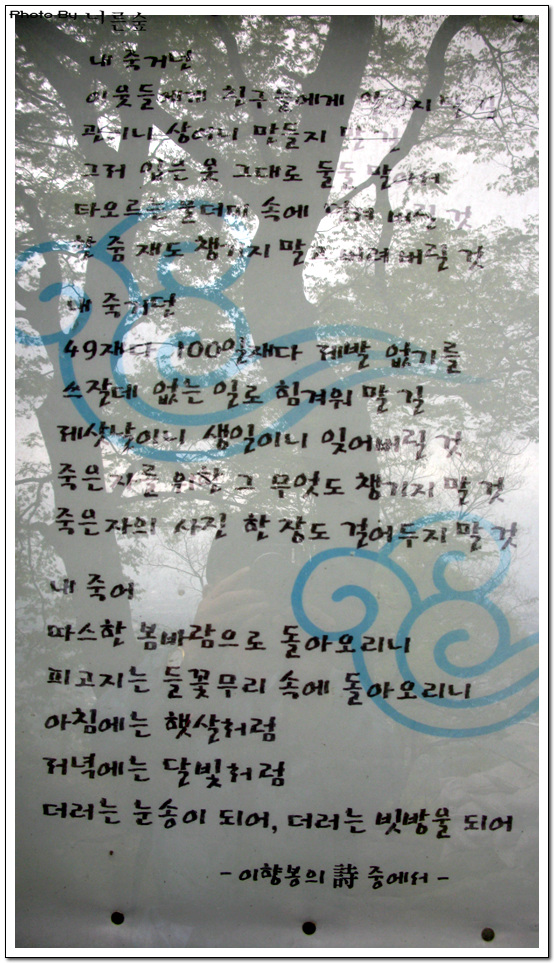 Photo By 너른숲
내 죽거덜
이웃들에게 친구들에게 알리지 말 길
관이니 상여니 맘들지 말 길
그저 입은 옷 그대로 둘둘 말아서
타오르는 불더미 속에 던져 버릴 것
한 줌 재도 챙기지 말고 버려 버릴 것
내 죽거덜
49재다 100일재다 제발 없기를
쓰잘데 없는 일로 힘겨워 말 길
제삿날이니 생일이니 잊어버릴 것
죽은 자를 위함 그 무엇도 챙기지 말 것
죽은 자의 사진 한 장도 걸어두지 말 것
내 죽어
따스한 봄바람으로 돌아오리니
피고지는 들꽃무리 속에 돌아오리니
아침에는 햇살처럼
저녁에는 달빛처럼
더러는 눈송이 되어, 더러는 빗방울 되어
- 이향봉의 詩 중에서 -